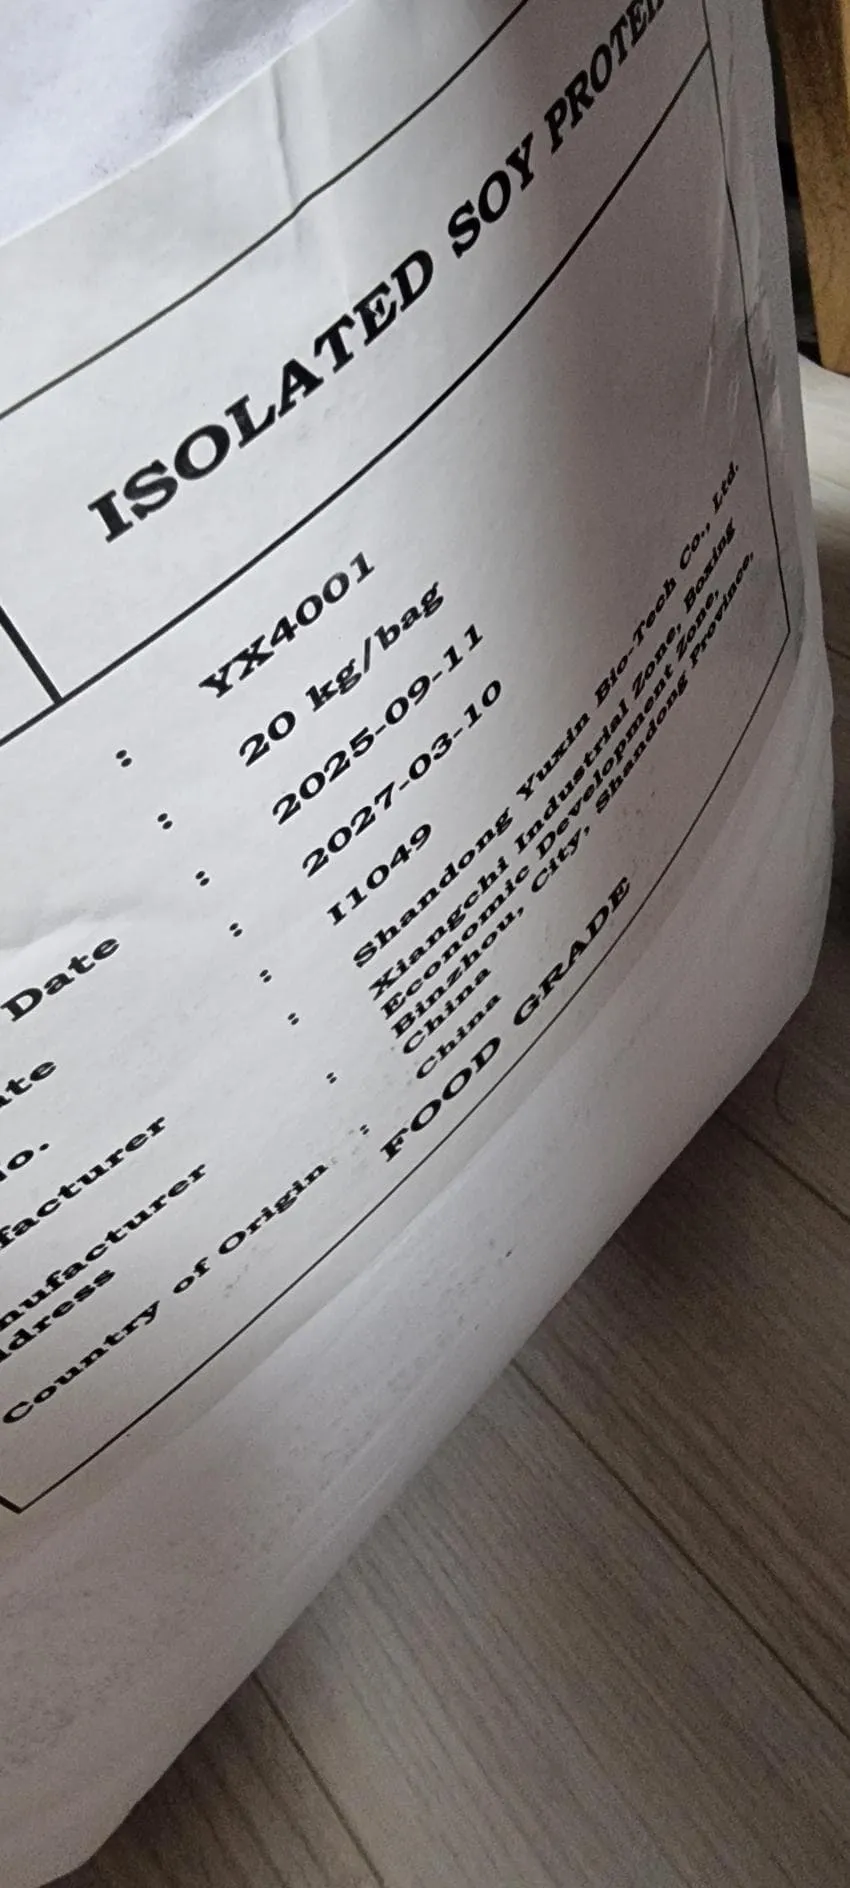 ISOLATED SOY PROTEIN
: YX4001
: 20 kg/bag
Date : 2025-09-11
: 2027-03-10
: I1049
: Shandong Yuxin Bio-Tech Co., Ltd.
: Xiangchi Industrial Zone, Boxing
Economic Development Zone,
Binzhou, City, Shandong Province,
China
Country of Origin : China
: FOOD GRADE